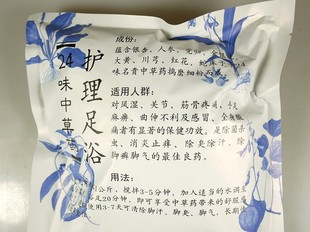 24味中草
护理足浴
成份:
蕴含银杏、人参、
大黄、川芎、红花、
味名贵中草药捣磨细粉
适用人群:
对风湿、关节、筋骨疼
麻痹、曲伸不利及感冒、全
痛者有显著的保健功效。是除菌杀
虫、消炎止痒、除臭除汗、除
脚癣脚气的最佳良药。
用法:
公斤,搅拌3-5分钟,加入适当的水调
20分钟,即可享受中草药带来的舒服
使用3-7天可清除脚汗、脚臭、脚气,长期